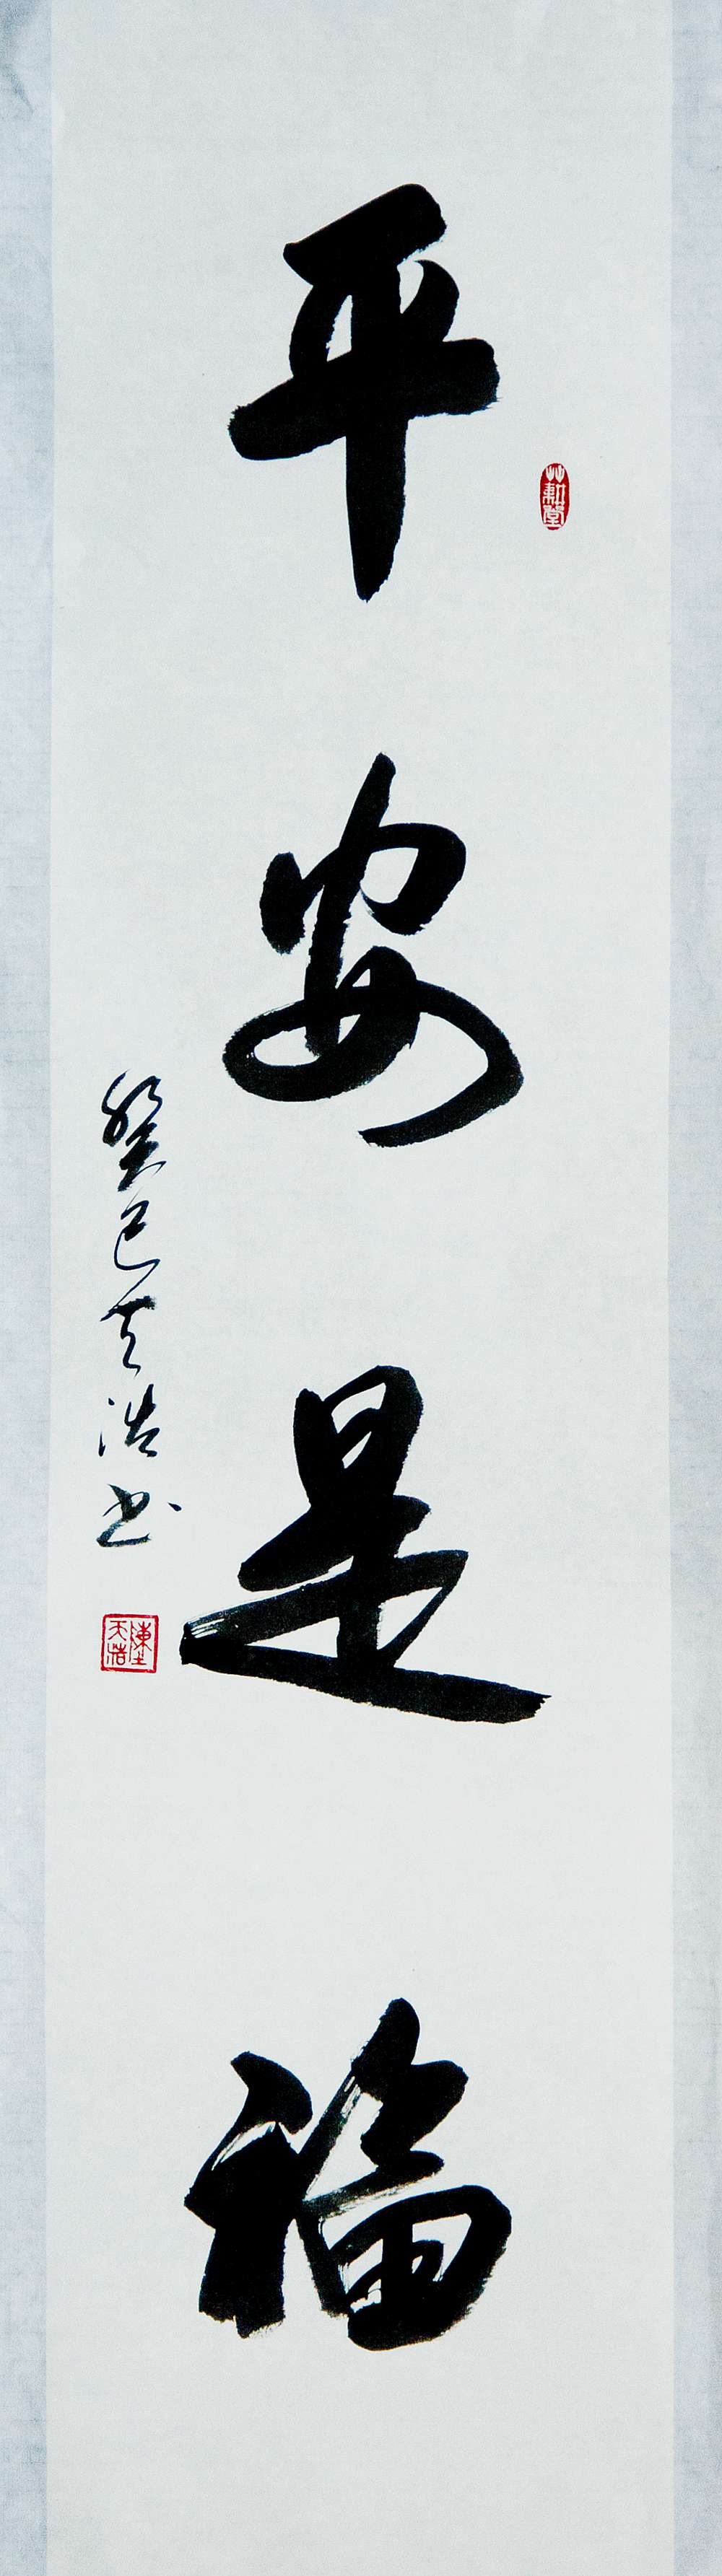 平安是福
癸巳天浩书
陳天浩